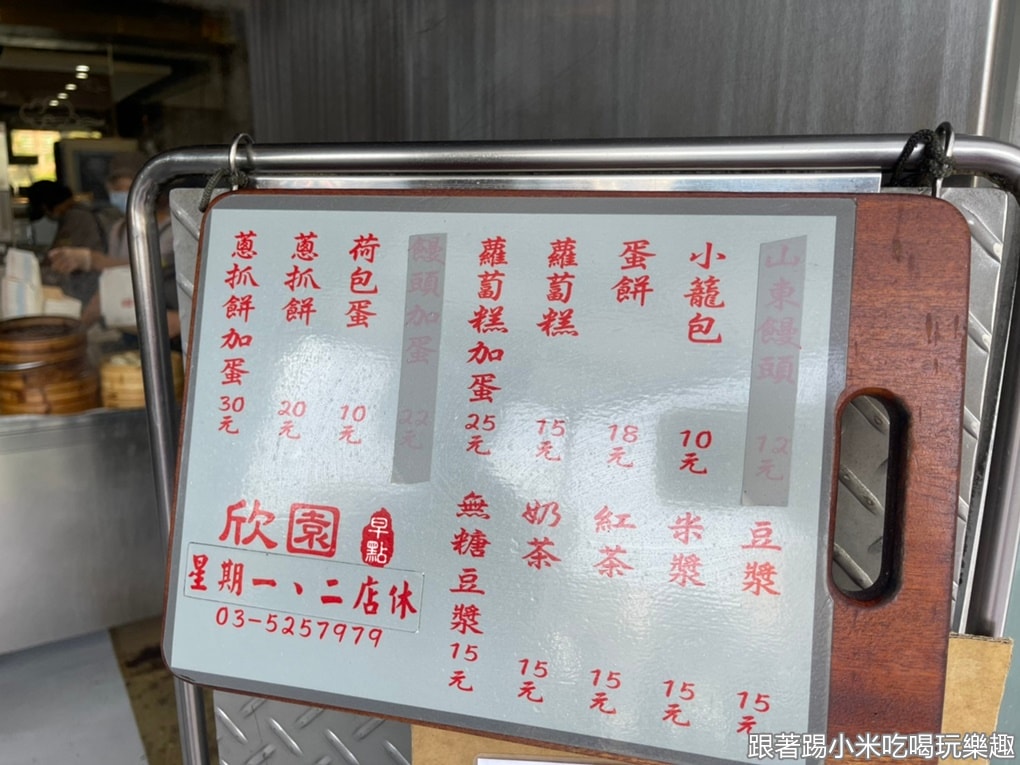 山東饅頭 12元
小籠包 10元
蛋餅 18元
蘿蔔糕 15元
蘿蔔糕加蛋 25元
饅頭加蛋 22元
荷包蛋 10元
蔥抓餅 20元
蔥抓餅加蛋 30元
豆漿 15元
米漿 15元
紅茶 15元
奶茶 15元
無糖豆漿 15元
欣園 早點
星期一、二店休
03-5257979
跟著踢小米吃喝玩樂趣